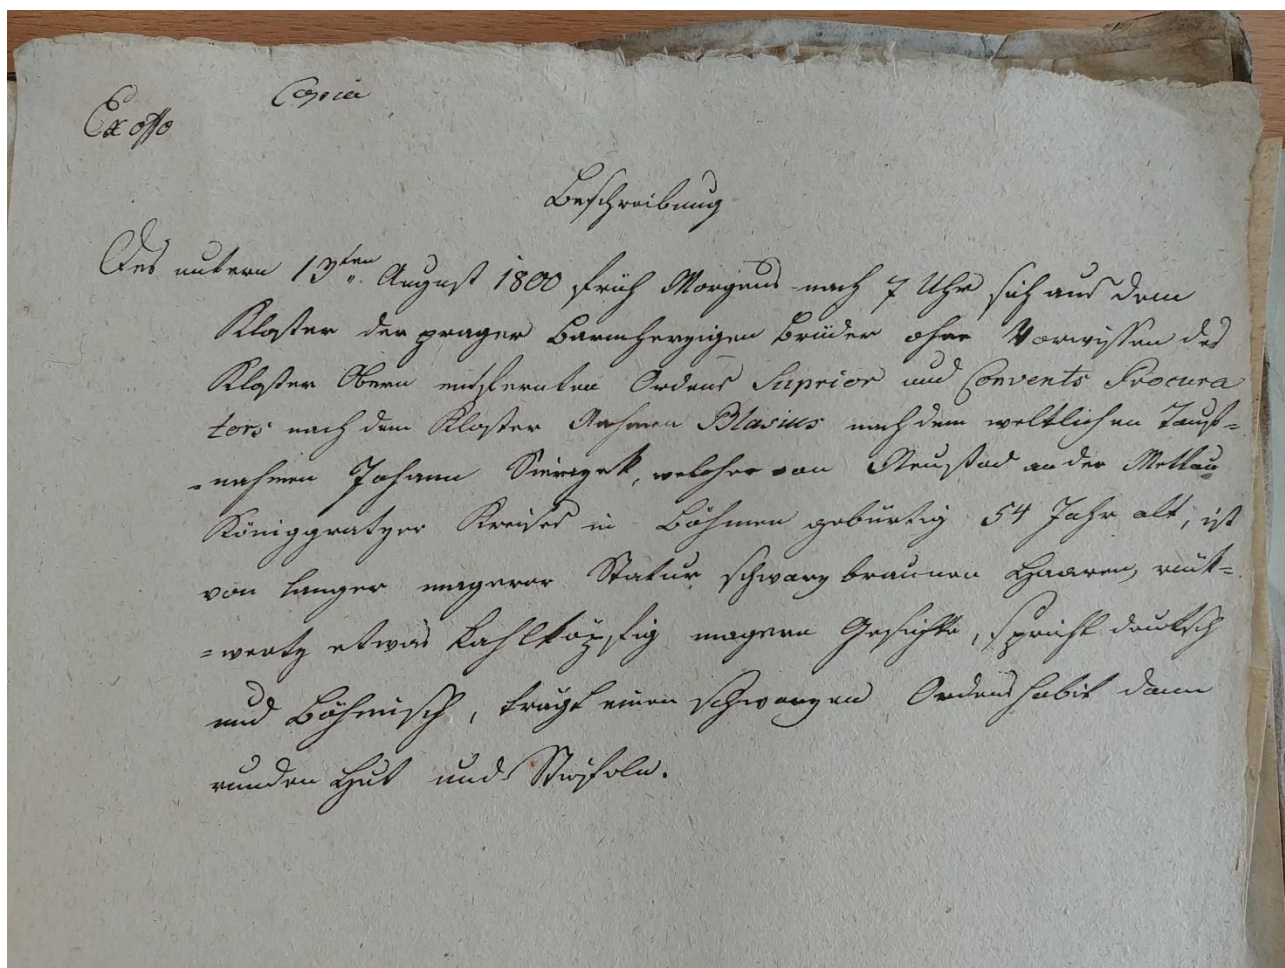 Copia
Ex offo
Beschreibung
Des untern 13ten August 1800 früh Morgens nach 7 Uhr sich aus dem
Kloster der prager Barmherzigen Brüder ohne Vorwissen des
Kloster Obern entfernten Ordens Suprior und Convents Procura
tors nach dem Kloster Nahmen Blasius nach dem weltlichen Tauf=
=nahmen Johann, welcher von Neustad an der Mettau
Königgratzer Kreises in Böhmen gebürtig 54 Jahr alt, ist
von langer magerer Statur schwarz braunen Haaren, rük=
=wertz etwas kahlköpfig magern Gesichts, spricht deutsch
und Böhmisch, trägt einen schwarzen Ordens habit dann
runden Hut und Stiefeln.